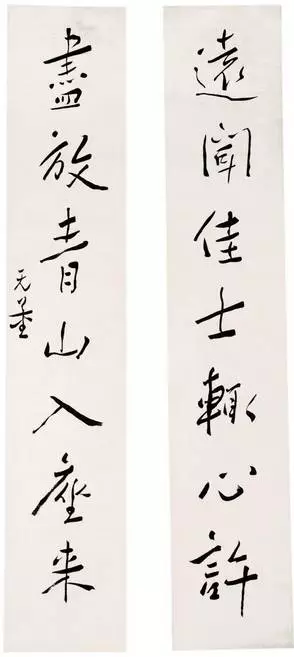 遠聞佳士輒心許
盡放青山入座來
无量